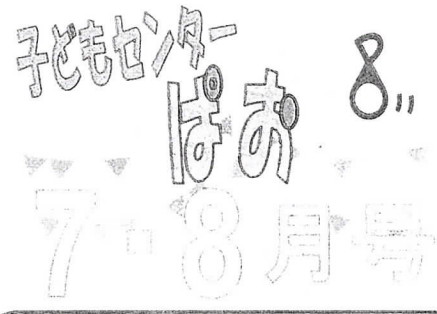 子どもセンター
ぱお
7・8月号